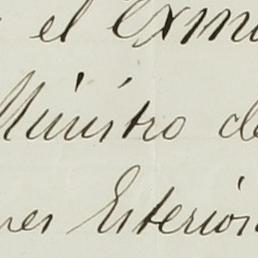 el Exmo
Ministro de
res Esterior